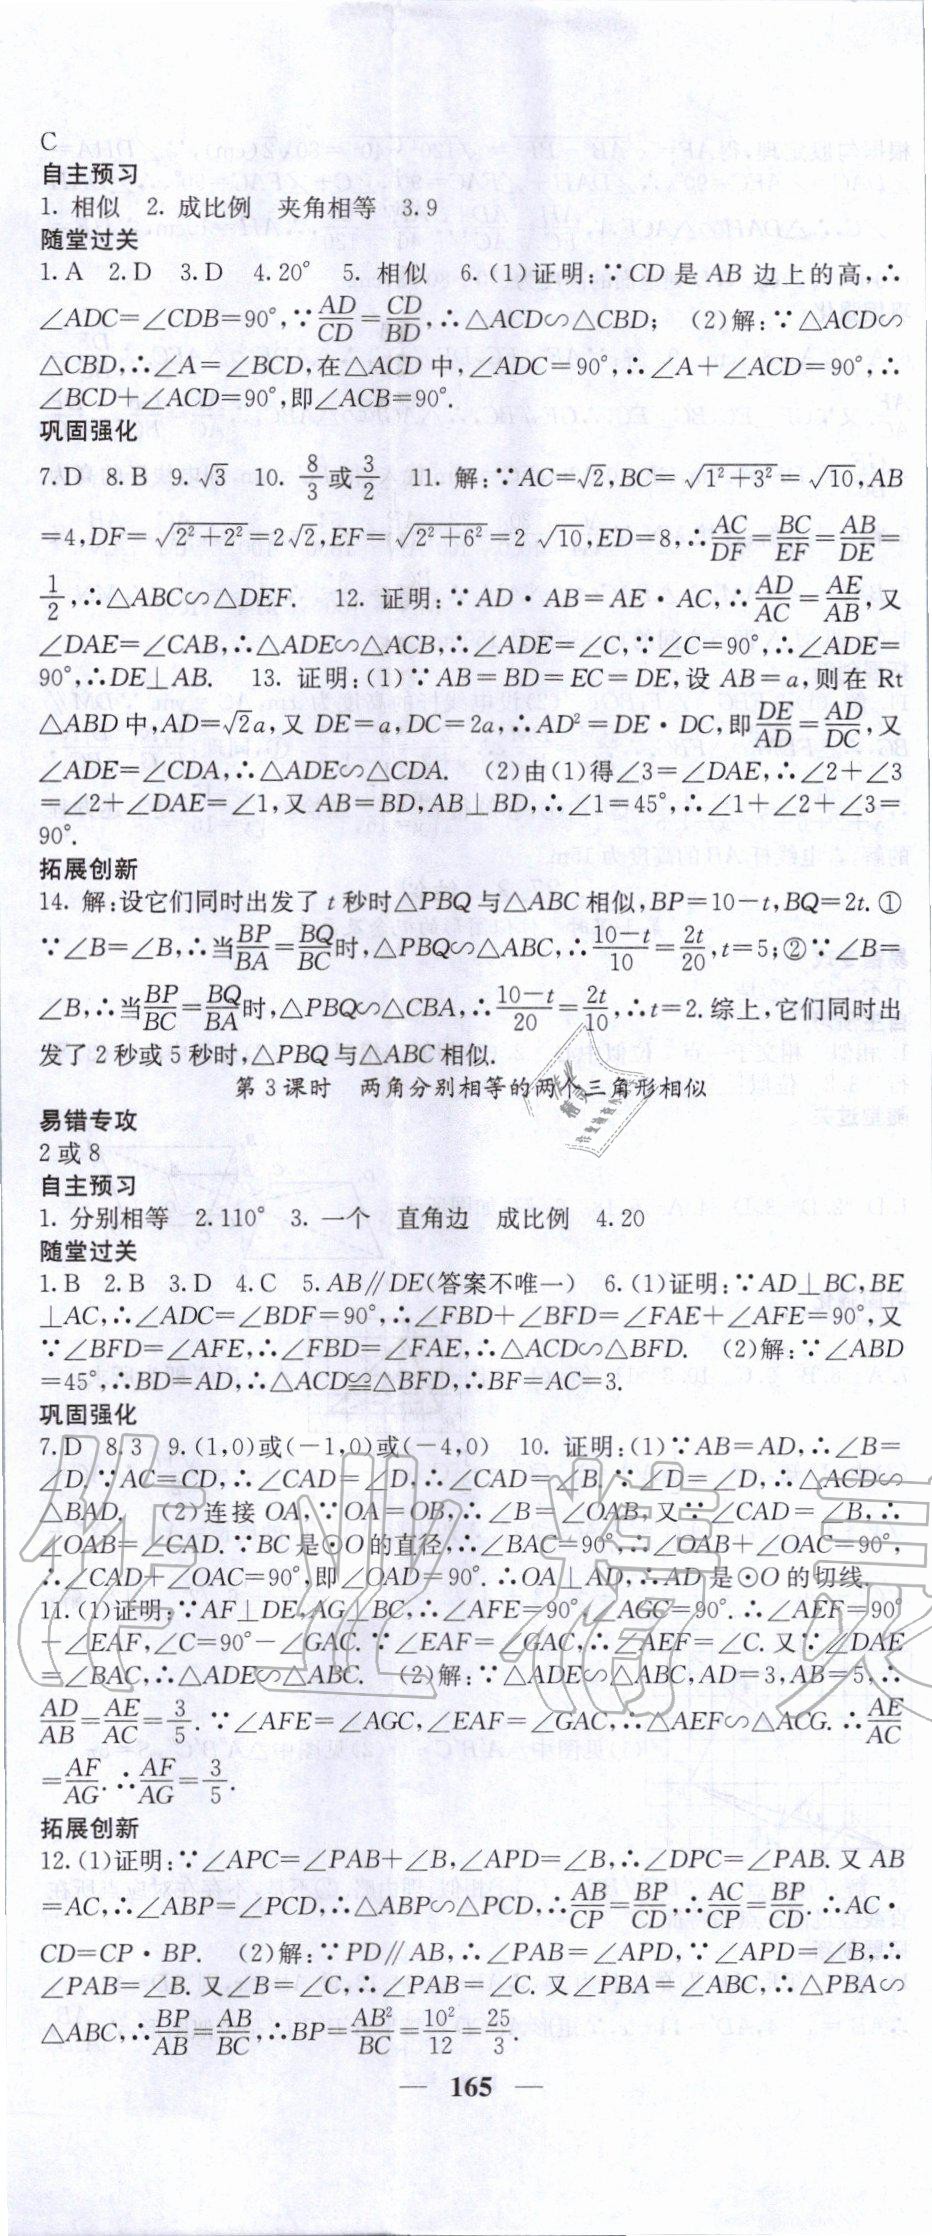 C
自主预习
1. 相似 2. 成比例 夹角相等 3.9
随堂过关
1.A 2.D 3.D 4.20° 5. 相似 6.(1)证明:∵CD 是 AB 边上的高,∴
∠ADC=∠CDB=90°,∵AD/CD=CD/BD,∴△ACD∽△CBD; (2)解:∵△ACD∽
△CBD,∴∠A=∠BCD,在△ACD 中,∠ADC=90°,∴∠A+∠ACD=90°,∴
∠BCD+∠ACD=90°,即∠ACB=90°.
巩固强化
7.D 8.B 9.√3 10. 8/3或3/2 11. 解:∵AC=√2,BC=√(1²+3²)=√10,AB
=4,DF=√(2²+2²)=2√2,EF=√(2²+6²)=2√10,ED=8,∴AC/DF=BC/EF=AB/DE=
1/2,∴△ABC∽△DEF. 12. 证明:∵AD·AB=AE·AC,∴AD/AC=AE/AB,又
∠DAE=∠CAB,∴△ADE∽△ACB,∴∠ADE=∠C,∵∠C=90°,∴∠ADE=
90°,∴DE⊥AB. 13. 证明:(1)∵AB=BD=EC=DE,设 AB=a,则在 Rt
△ABD 中,AD=√2a,又 DE=a,DC=2a,∴AD²=DE·DC,即DE/AD=AD/DC,又
∠ADE=∠CDA,∴△ADE∽△CDA. (2)由(1)得∠3=∠DAE,∴∠2+∠3
=∠2+∠DAE=∠1,又 AB=BD,AB⊥BD,∴∠1=45°,∴∠1+∠2+∠3=
90°.
拓展创新
14. 解:设它们同时出发了 t 秒时△PBQ 与△ABC 相似,BP=10-t,BQ=2t.①
∵∠B=∠B,∴当BP/BA=BQ/BC时,△PBQ∽△ABC,∴(10-t)/10=2t/20,t=5;②∵∠B=
∠B,∴当BP/BC=BQ/BA时,△PBQ∽△CBA,∴(10-t)/20=2t/10,∴t=2.综上,它们同时出
发了 2 秒或 5 秒时,△PBQ 与△ABC 相似.
第 3 课时 两角分别相等的两个三角形相似
易错专攻
2 或 8
自主预习
1. 分别相等 2.110° 3. 一个 直角边 成比例 4.20
随堂过关
1.B 2.B 3.D 4.C 5.AB∥DE(答案不唯一) 6.(1)证明:∵AD⊥BC,BE
⊥AC,∴∠ADC=∠BDF=90°,∴∠FBD+∠BFD=∠FAE+∠AFE=90°,又
∵∠BFD=∠AFE,∴∠FBD=∠FAE,∴△ACD∽△BFD. (2)解:∵∠ABD
=45°,∴BD=AD,∴△ACD≌△BFD,∴BF=AC=3.
巩固强化
7.D 8.3 9.(1,0)或(-1,0)或(-4,0) 10. 证明:(1)∵AB=AD,∴∠B=
∠D.∵AC=CD,∴∠CAD=∠D,∴∠CAD=∠B.∵∠D=∠D,∴△ACD∽
△BAD. (2)连接 OA,∵OA=OB,∴∠B=∠OAB,又∵∠CAD=∠B,∴
∠OAB=∠CAD.∵BC 是⊙O 的直径,∴∠BAC=90°,∴∠OAB+∠OAC=90°,
∴∠CAD+∠OAC=90°,即∠OAD=90°.∴OA⊥AD,∴AD 是⊙O 的切线.
11.(1)证明:∵AF⊥DE,AG⊥BC,∴∠AFE=90°,∠AGC=90°.∴∠AEF=90°
-∠EAF,∠C=90°-∠GAC.∵∠EAF=∠GAC,∴∠AEF=∠C.又∵∠DAE
=∠BAC,∴△ADE∽△ABC. (2)解:∵△ADE∽△ABC,AD=3,AB=5,∴
AD/AB=AE/AC=3/5.∵∠AFE=∠AGC,∠EAF=∠GAC,∴△AEF∽△ACG.∴AE/AC
=AF/AG.∴AF/AG=3/5.
拓展创新
12.(1)证明:∵∠APC=∠PAB+∠B,∠APD=∠B,∴∠DPC=∠PAB.又 AB
=AC,∴∠ABP=∠PCD,∴△ABP∽△PCD,∴AB/CP=BP/CD,∴AC/CP=BP/CD.∴AC·
CD=CP·BP. (2)解:∵PD∥AB,∴∠PAB=∠APD,∵∠APD=∠B,∴
∠PAB=∠B.又∠B=∠C,∴∠PAB=∠C.又∠PBA=∠ABC,∴△PBA∽
△ABC,∴BP/AB=AB/BC,∴BP=AB²/BC=10²/12=25/3.
— 165 —